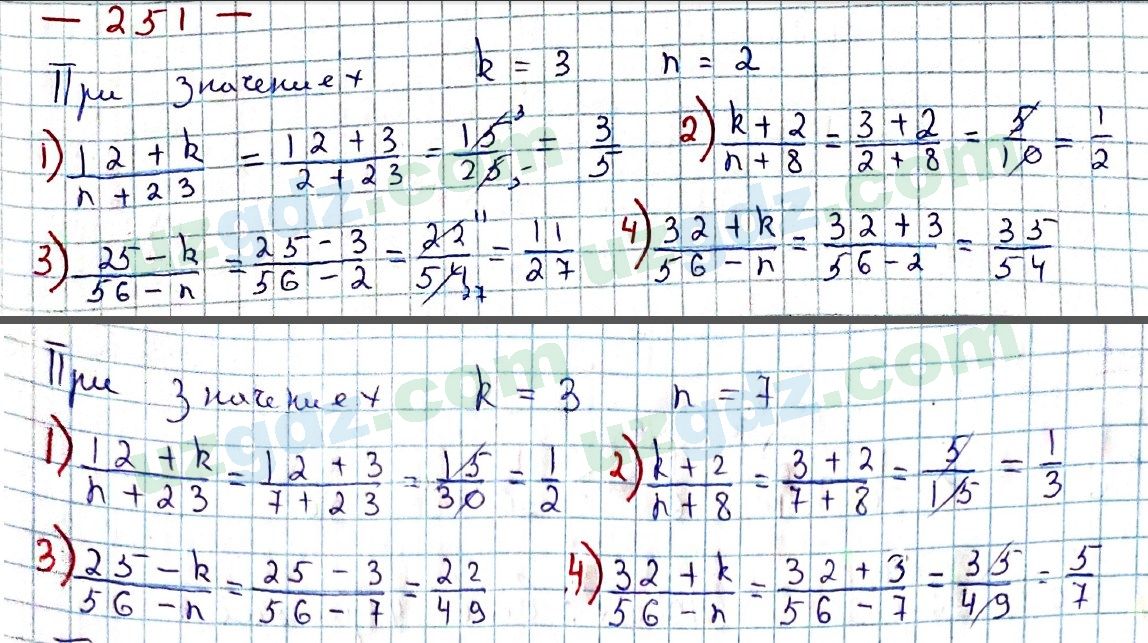 — 251 —
При значениях k = 3 n = 2
1) (12 + k)/(n + 23) = (12 + 3)/(2 + 23) = 15/25 = 3/5 2) (k + 2)/(n + 8) = (3 + 2)/(2 + 8) = 5/10 = 1/2
3) (25 − k)/(56 − n) = (25 − 3)/(56 − 2) = 22/54 = 11/27 4) (32 + k)/(56 − n) = (32 + 3)/(56 − 2) = 35/54
При значениях k = 3 n = 7
1) (12 + k)/(n + 23) = (12 + 3)/(7 + 23) = 15/30 = 1/2 2) (k + 2)/(n + 8) = (3 + 2)/(7 + 8) = 5/15 = 1/3
3) (25 − k)/(56 − n) = (25 − 3)/(56 − 7) = 22/49 4) (32 + k)/(56 − n) = (32 + 3)/(56 − 7) = 35/49 = 5/7
uzgdz.com
uzgdz.com
uzgdz.com
uzgdz.com